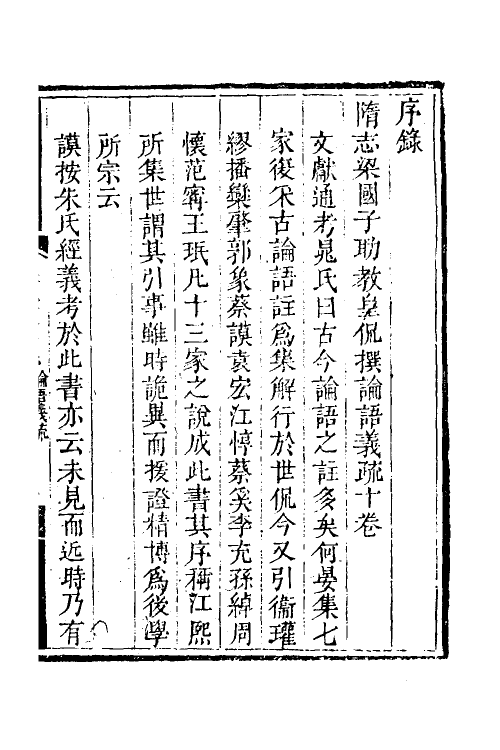 序錄
隋志梁國子助教皇侃撰論語義疏十卷
文獻通考晁氏曰古今論語之註多矣何晏集七
家復采古論語註爲集解行於世侃今又引衞瓘
繆播欒肇郭象蔡謨袁宏江惇蔡奚李充孫綽周
懷范寗王珉凡十三家之說成此書其序稱江熙
所集世謂其引事雖時詭異而援證精博爲後學
所宗云
謨按朱氏經義考於此書亦云未見而近時乃有
論語義疏